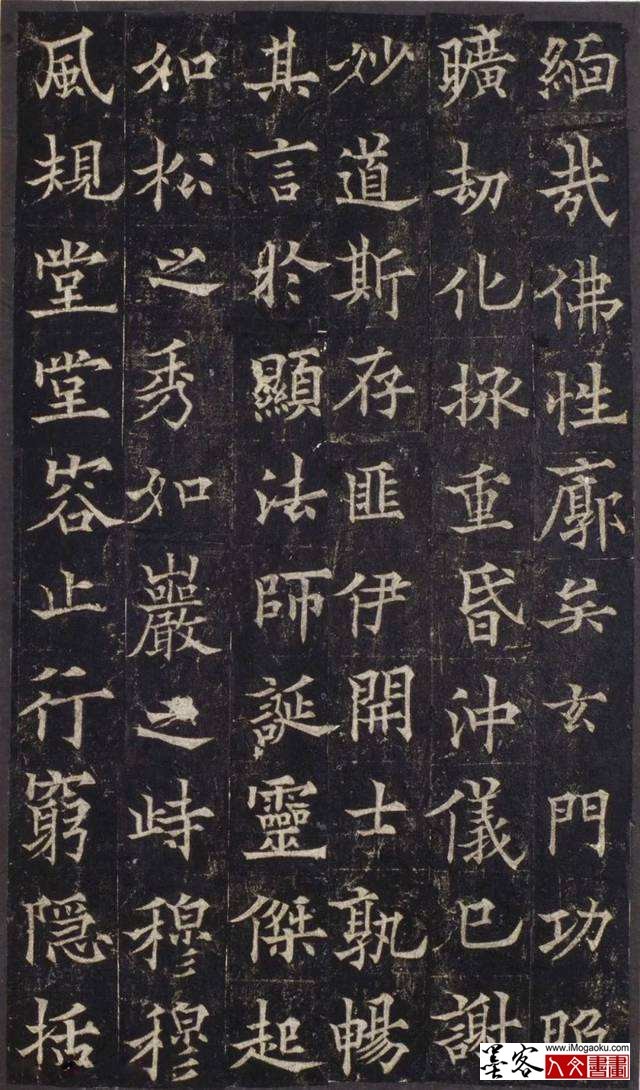 緬哉佛性廓矣玄門功
曠劫化拯重昏沖儀已謝
妙道斯存匪伊開士孰暢
其言於顯法師誕靈傑起
如松之秀如巖之峙穆穆
風規堂堂容止行窮隱括
墨客
www.iMogaoku.com
人文書畫